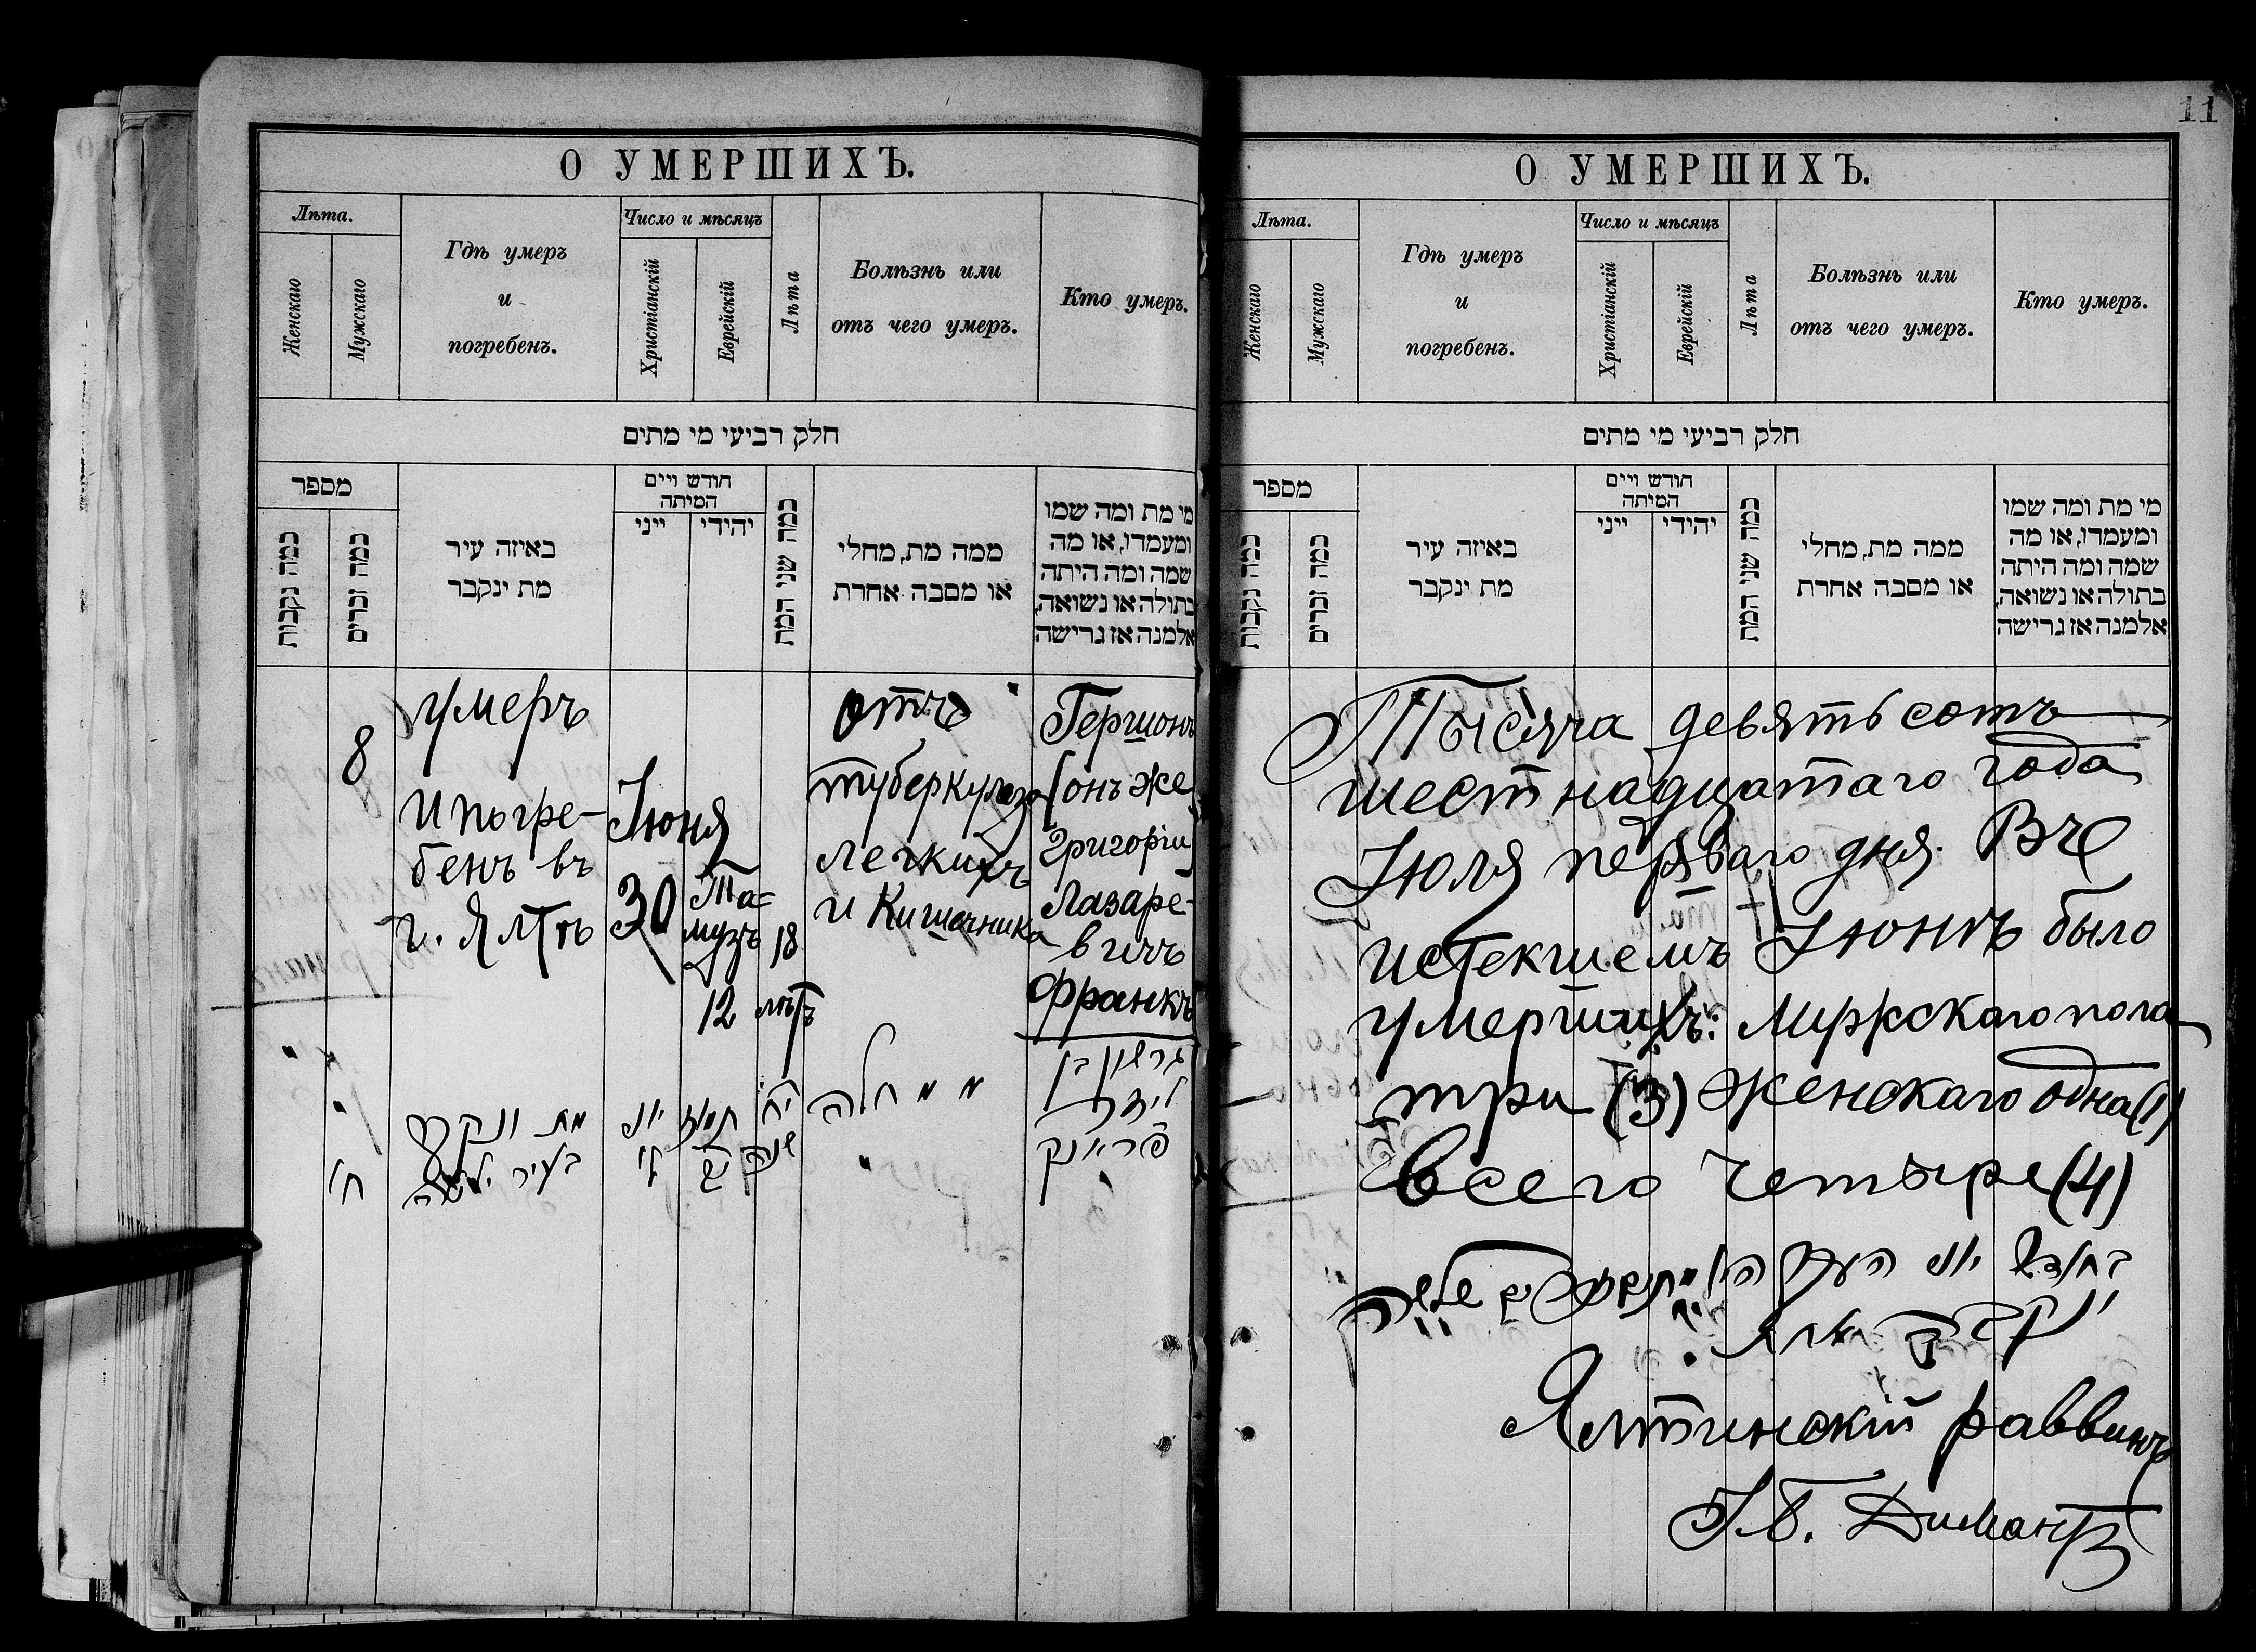 О УМЕРШИХЪ.
Лѣта.
Женскаго
Мужскаго
Гдѣ умеръ
и
погребенъ.
Число и мѣсяцъ
Христіанскій
Еврейскій
Лѣта
Болѣзнь или
отъ чего умеръ.
Кто умеръ.
חלק רביעי מי מתים
מספר
כמה נקבות
כמה זכרים
באיזה עיר
מת ינקבר
חודש ויים
המיתה
ייני
יהודי
כמה שני המת
ממה מת, מחלי
או מסבה אחרת
מי מת ומה שמו
ומעמדו, או מה
שמה ומה היתה
בתולה או נשואה,
אלמנה אז גרישה
8
умеръ
и погре-
бенъ въ
г. Ялтѣ
Іюня
30
Та-
музъ
12
18
лѣтъ
отъ
туберкулеза
легкихъ
и Кишечника
Гершонъ
(онъ же
Григорій)
Лазаре-
вичъ
Франкъ
ח/
מת ונקבר
בעיר יאלטה
יוני
ל/
תמוז
יב
יח
שנה
ממחלה
גרשון בן
ליזר
פראנק
11
О УМЕРШИХЪ.
Лѣта.
Женскаго
Мужскаго
Гдѣ умеръ
и
погребенъ.
Число и мѣсяцъ
Христіанскій
Еврейскій
Лѣта
Болѣзнь или
отъ чего умеръ.
Кто умеръ.
חלק רביעי מי מתים
מספר
כמה נקבות
כמה זכרים
באיזה עיר
מת ינקבר
חודש ויים
המיתה
ייני
יהודי
כמה שני המת
ממה מת, מחלי
או מסבה אחרת
מי מת ומה שמו
ומעמדו, או מה
שמה ומה היתה
בתולה או נשואה,
אלמנה אז גרישה
Тысяча девятьсотъ
шестнадцатаго года
Іюля перваго дня. Въ
истекшемъ Іюнѣ было
умершихъ: Мужскаго пола
три (3) Женскаго одна (1)
Всего четыре (4)
בחודש יוני שלשה
ונקבה אחת
Ялтинскій раввинъ
І.Б. Димантъ